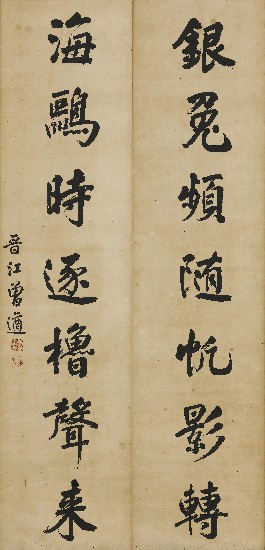 銀兔頻隨帆影轉
海鷗時逐櫓聲来
晉江曾遒